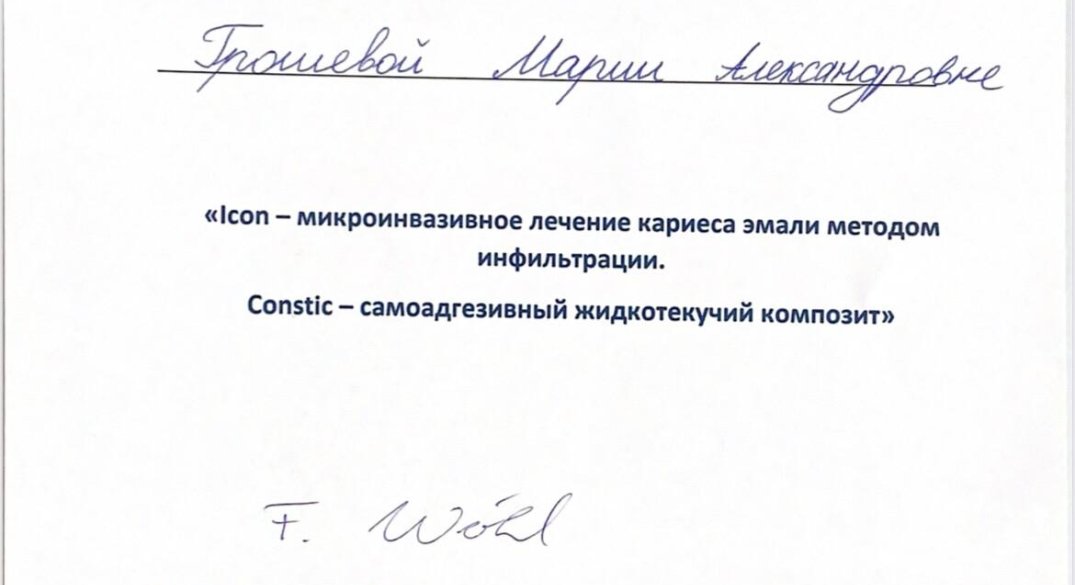 Грошевой Марии Александровне
«Icon – микроинвазивное лечение кариеса эмали методом
инфильтрации.
Constic – самоадгезивный жидкотекучий композит»
F. Wöhl